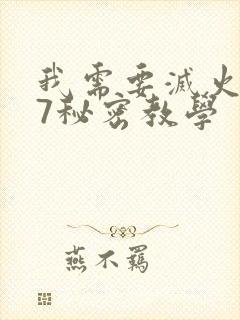 我需要滅火
7秘密教學
燕不羈